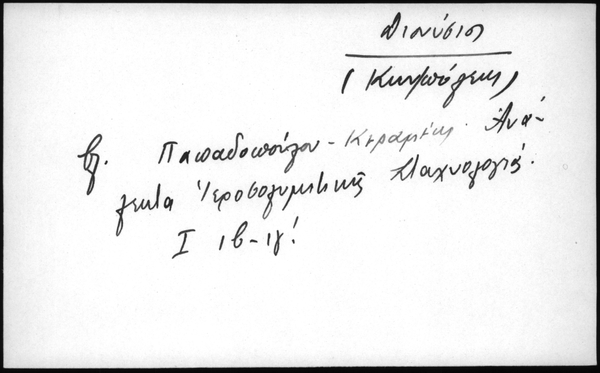 Διονύσιος
(Κων/πόλεως)
βλ. Παπαδοπούλου-Κεραμέως. Ἀνά-
λεκτα Ἱεροσολυμιτικῆς Σταχυολογίας.
I ιβ-ιγ!